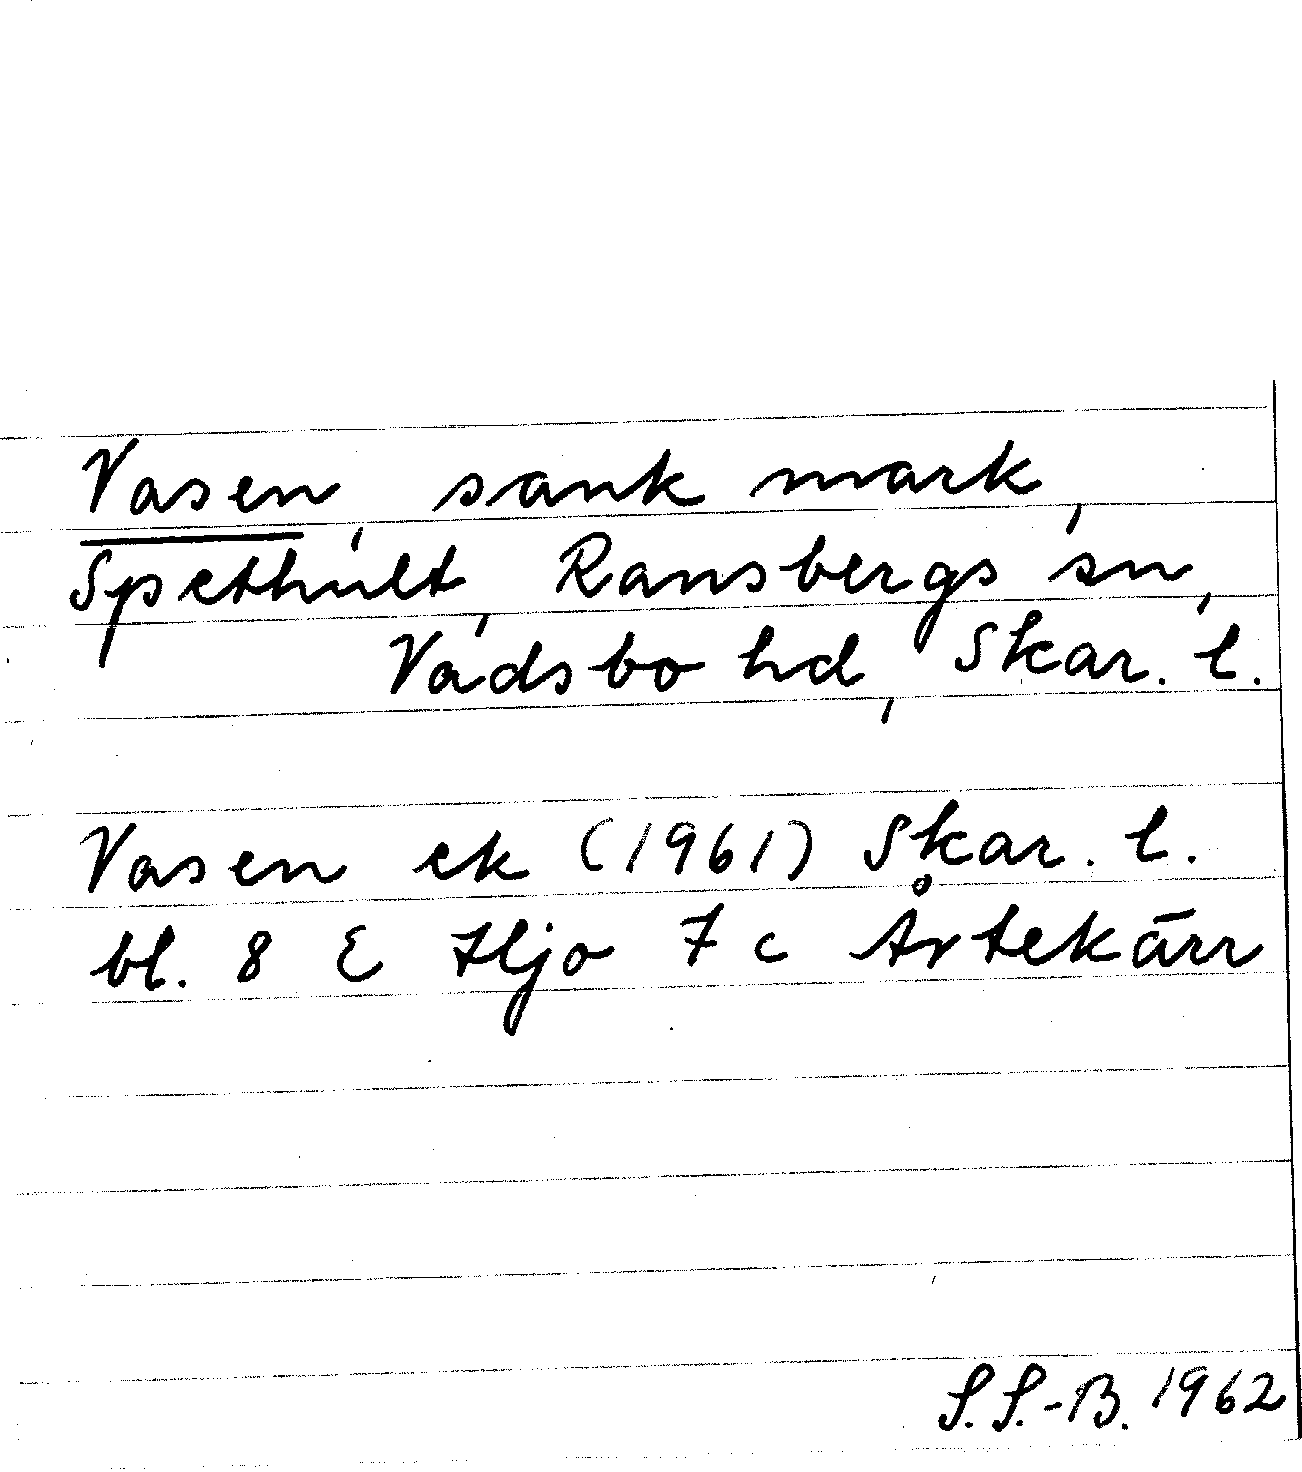 Vasen, sank mark,
Spethult, Ransbergs sn,
Vadsbo hd, Skar. l.
Vasen ek (1961) Skar. l.
bl. 8 E Hjo 7 c Årtekärr
S. S.-B. 1962